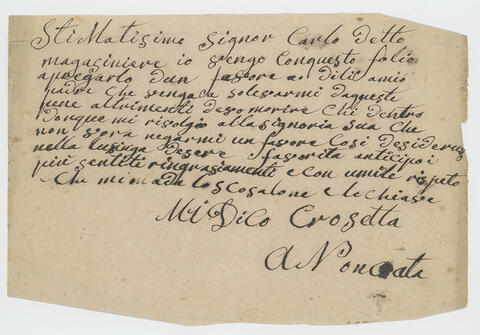 StiMatisimo Signor Carlo Detto
magasiniere io vengo Conquesto folio
apregarlo dun favore ad dilli amio
padre che venga da solevarmi daqueste
pene altrimenti devo morire Chi dentro
Donque mi rivolgio alla signoria Sua Che
non Sora negarmi un favore Cosi desideruso
nella lusinga desere favorita anticipo i
più sentiti ringrasiamenti e con umile rispeto
Che mi mada lo scosalone e le chiave
Mi Dico Crosetta
A Noncata